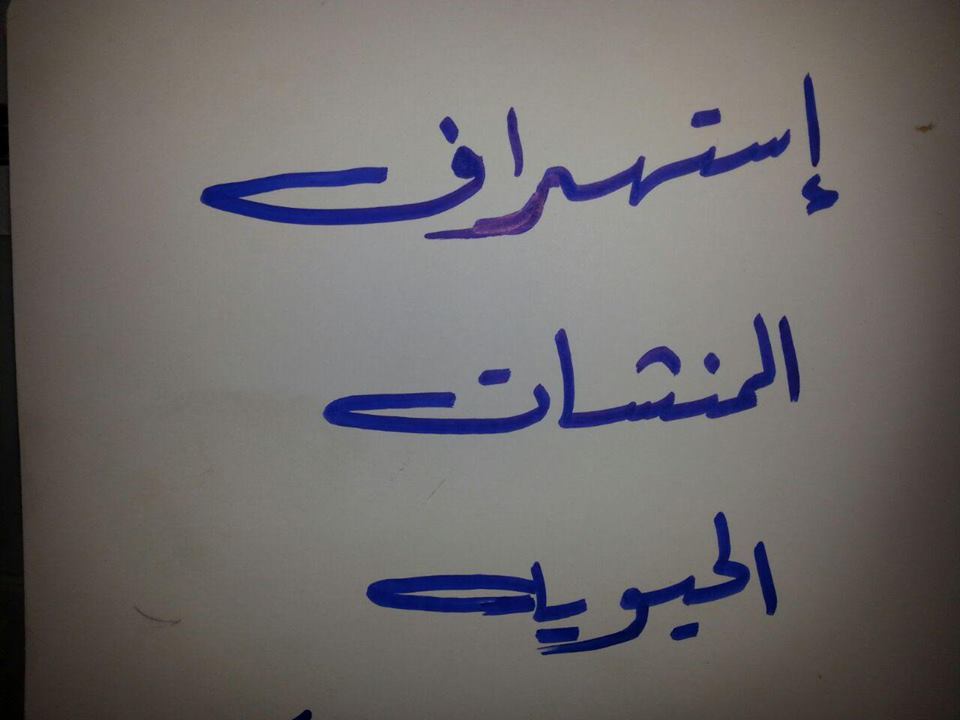 إستهداف
المنشات
الحيويه